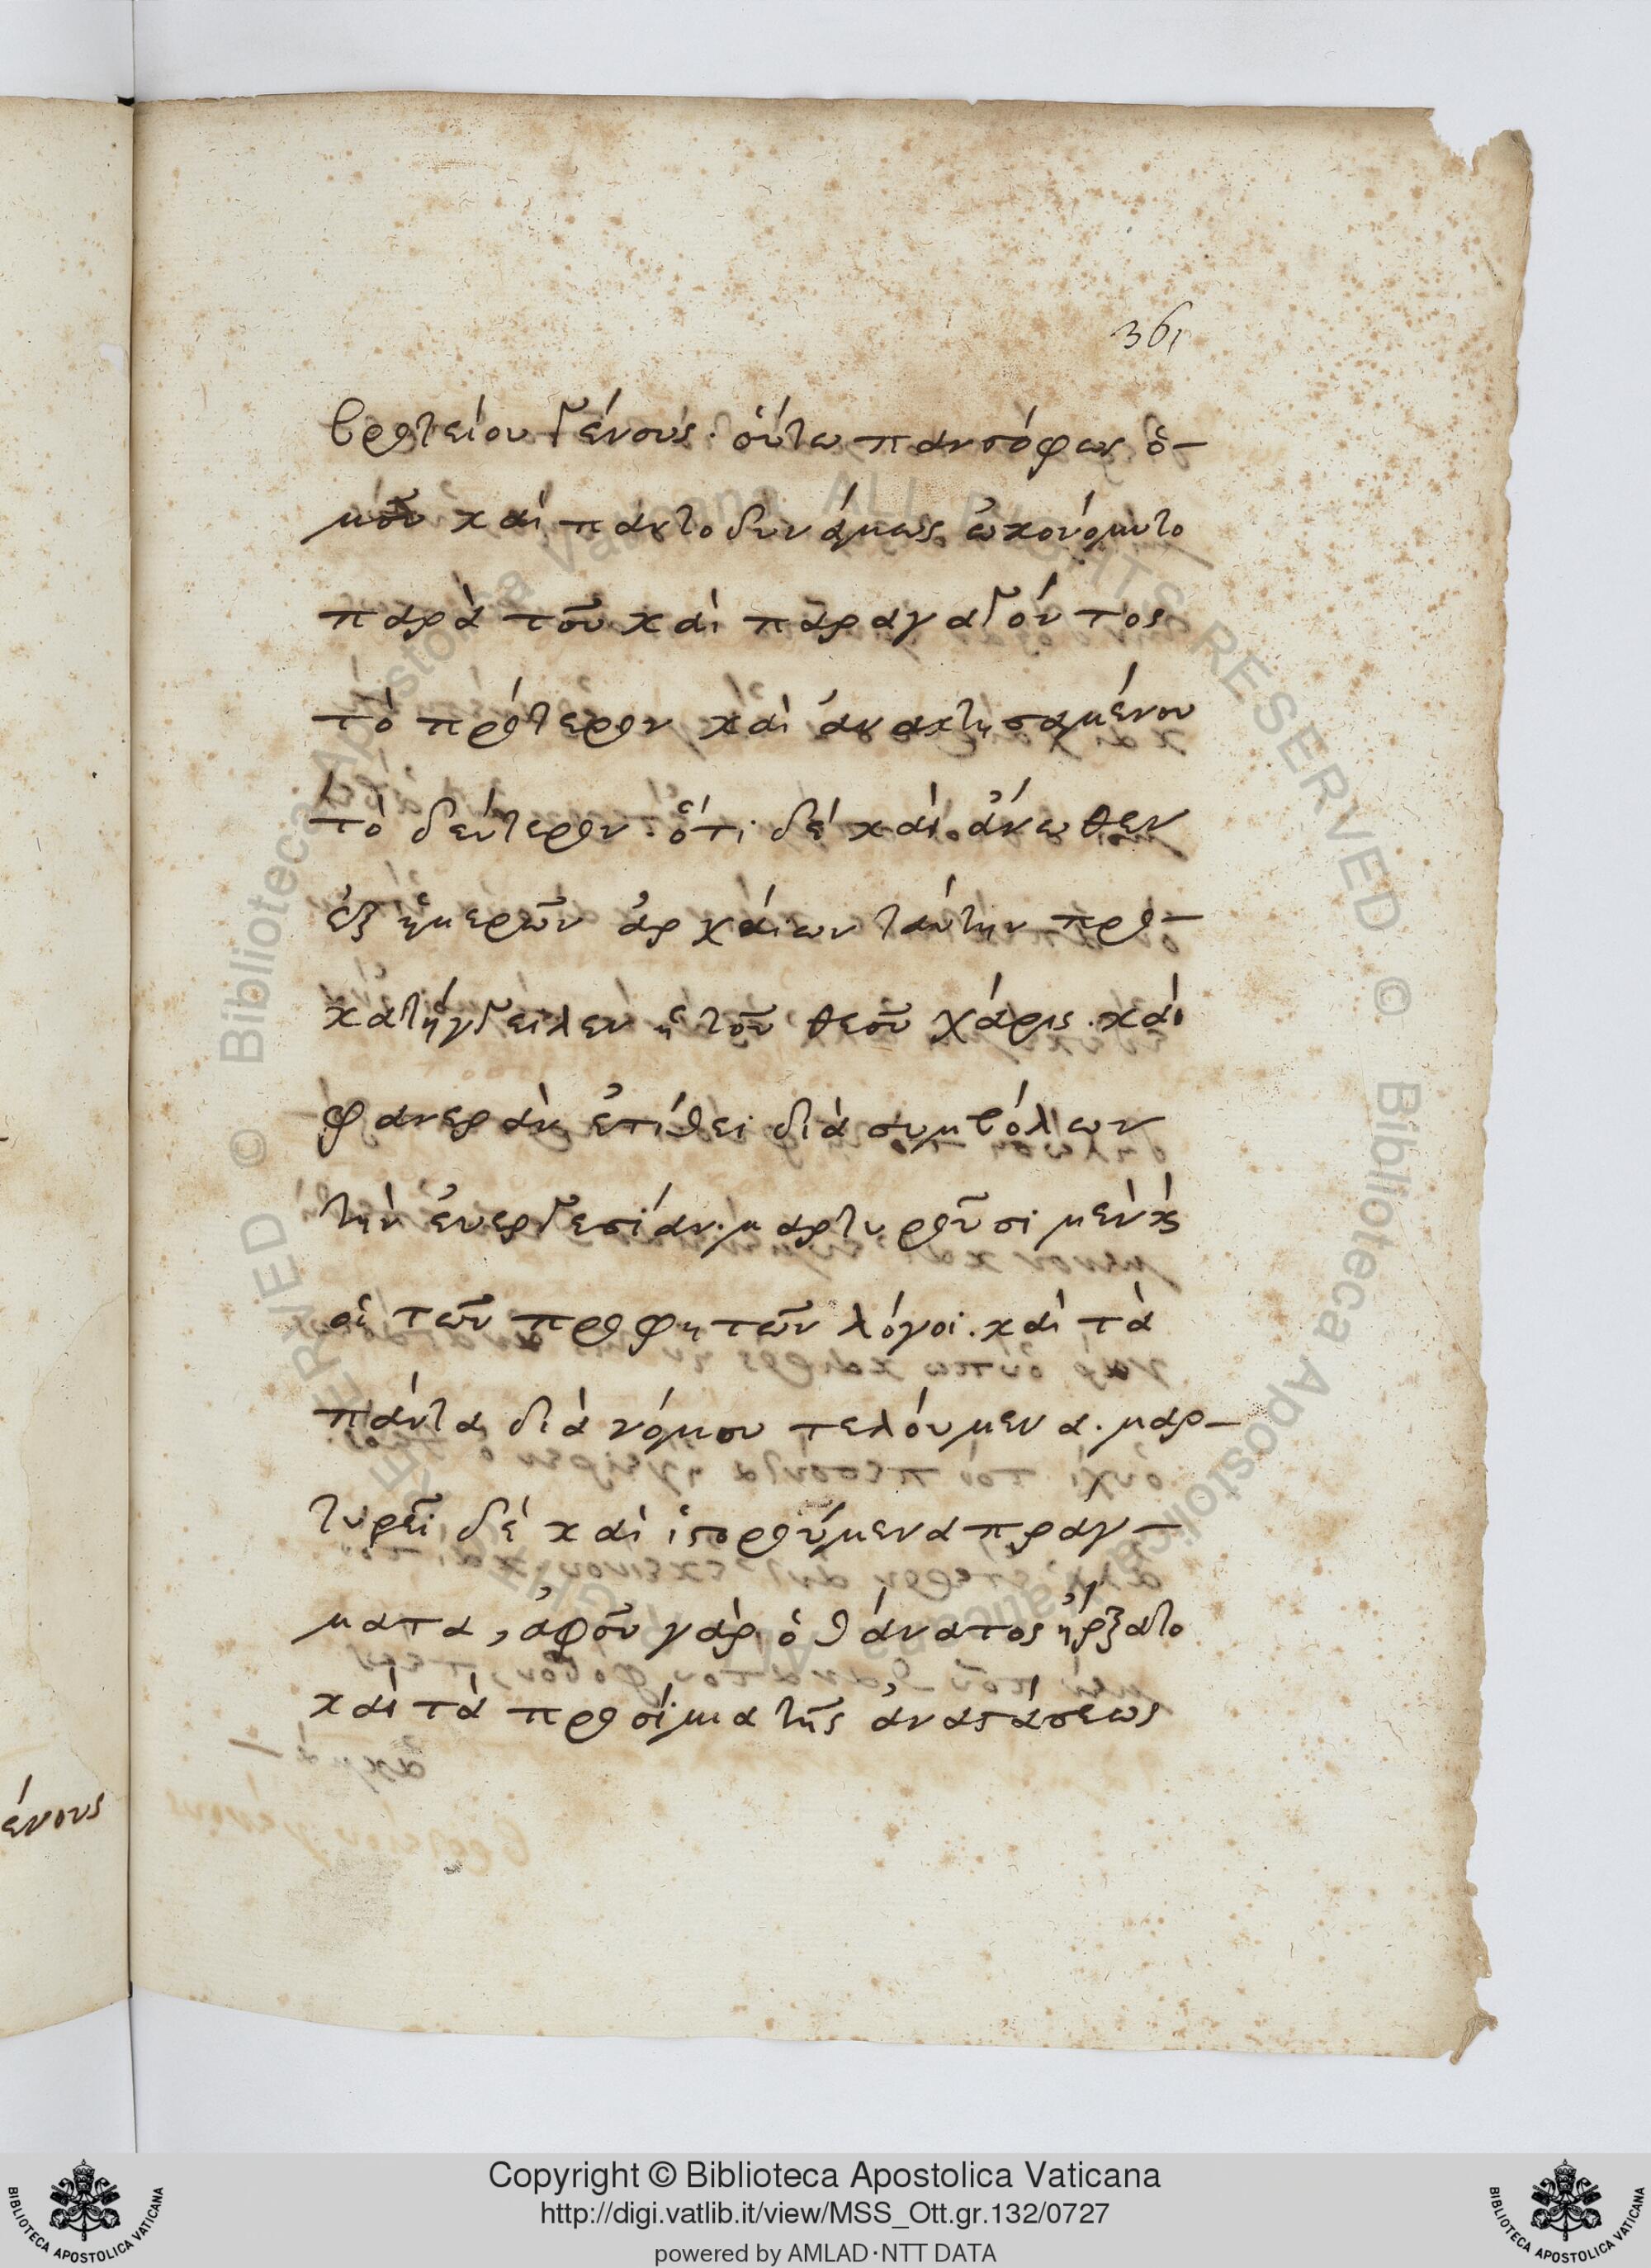 361
βροτείου γένους· οὕτω πανσόφως ὁ-
μοῦ καὶ παντοδυνάμως ὠκονόμητο
παρὰ τοῦ καὶ παραγαγόντος
τὸ πρότερον καὶ ἀνακτησαμένου
τὸ δεύτερον· ὅτι δὲ καὶ ἄνωθεν
ἐξ ἡμερῶν ἀρχαίων ταύτην προ-
κατήγγειλεν ἡ τοῦ θεοῦ χάρις· καὶ
φανερὰν ἐτίθει διὰ συμβόλων
τὴν ἐυεργεσίαν· μαρτυροῦσι μὲν κ̀
οἱ τῶν προφητῶν λόγοι· καὶ τὰ
πάντα διὰ νόμου τελόυμενα· μαρ-
τυρεῖ δὲ καὶ ἱστορούμενα πραγ-
ματα, ἀφοῦ γὰρ ὁ θάνατος ἤρξατο
καὶ τὰ προοίμια τῆς ἀναστάσεως
ένους
Copyright © Biblioteca Apostolica Vaticana
http://digi.vatlib.it/view/MSS_Ott.gr.132/0727
powered by AMLAD·NTT DATA
BIBLIOTECA APOSTOLICA VATICANA
BIBLIOTECA APOSTOLICA VATICANA